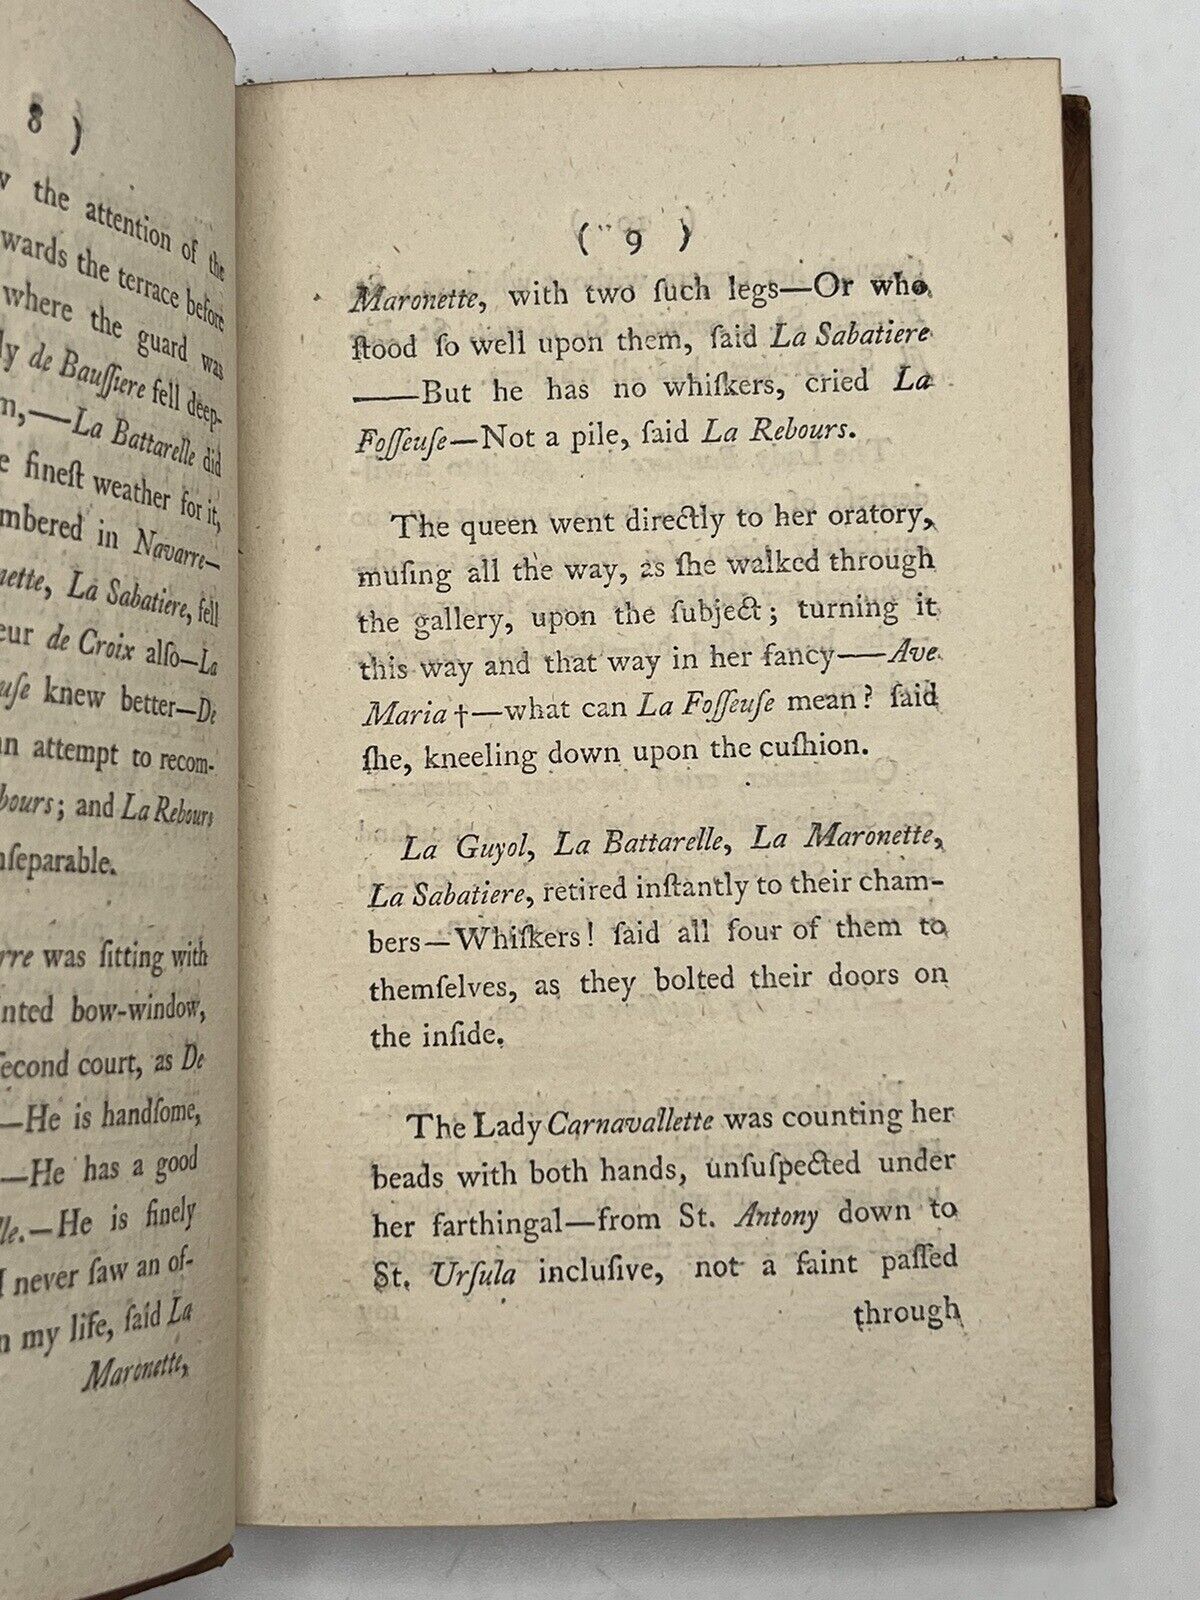 8 )
the attention of the
wards the terrace before
where the guard was
de Bauſſiere fell deep-
—La Battarelle did
fineſt weather for it,
mbered in Navarre—
La Sabatiere, fell
de Croix alſo—La
knew better—De
an attempt to recom-
bours; and La Rebours
nſeparable.
was ſitting with
bow-window,
ſecond court, as De
—He is handſome,
—He has a good
lle.—He is finely
I never ſaw an of-
my life, ſaid La
Maronette,
( 9 )
Maronette, with two ſuch legs—Or who
ſtood ſo well upon them, ſaid La Sabatiere
——But he has no whiſkers, cried La
Foſſeuſe—Not a pile, ſaid La Rebours.
The queen went directly to her oratory,
muſing all the way, as ſhe walked through
the gallery, upon the ſubject; turning it
this way and that way in her fancy——Ave
Maria †—what can La Foſſeuſe mean? ſaid
ſhe, kneeling down upon the cuſhion.
La Guyol, La Battarelle, La Maronette,
La Sabatiere, retired inſtantly to their cham-
bers—Whiſkers! ſaid all four of them to
themſelves, as they bolted their doors on
the inſide.
The Lady Carnavallette was counting her
beads with both hands, unſuſpected under
her farthingal—from St. Antony down to
St. Urſula incluſive, not a ſaint paſſed
through